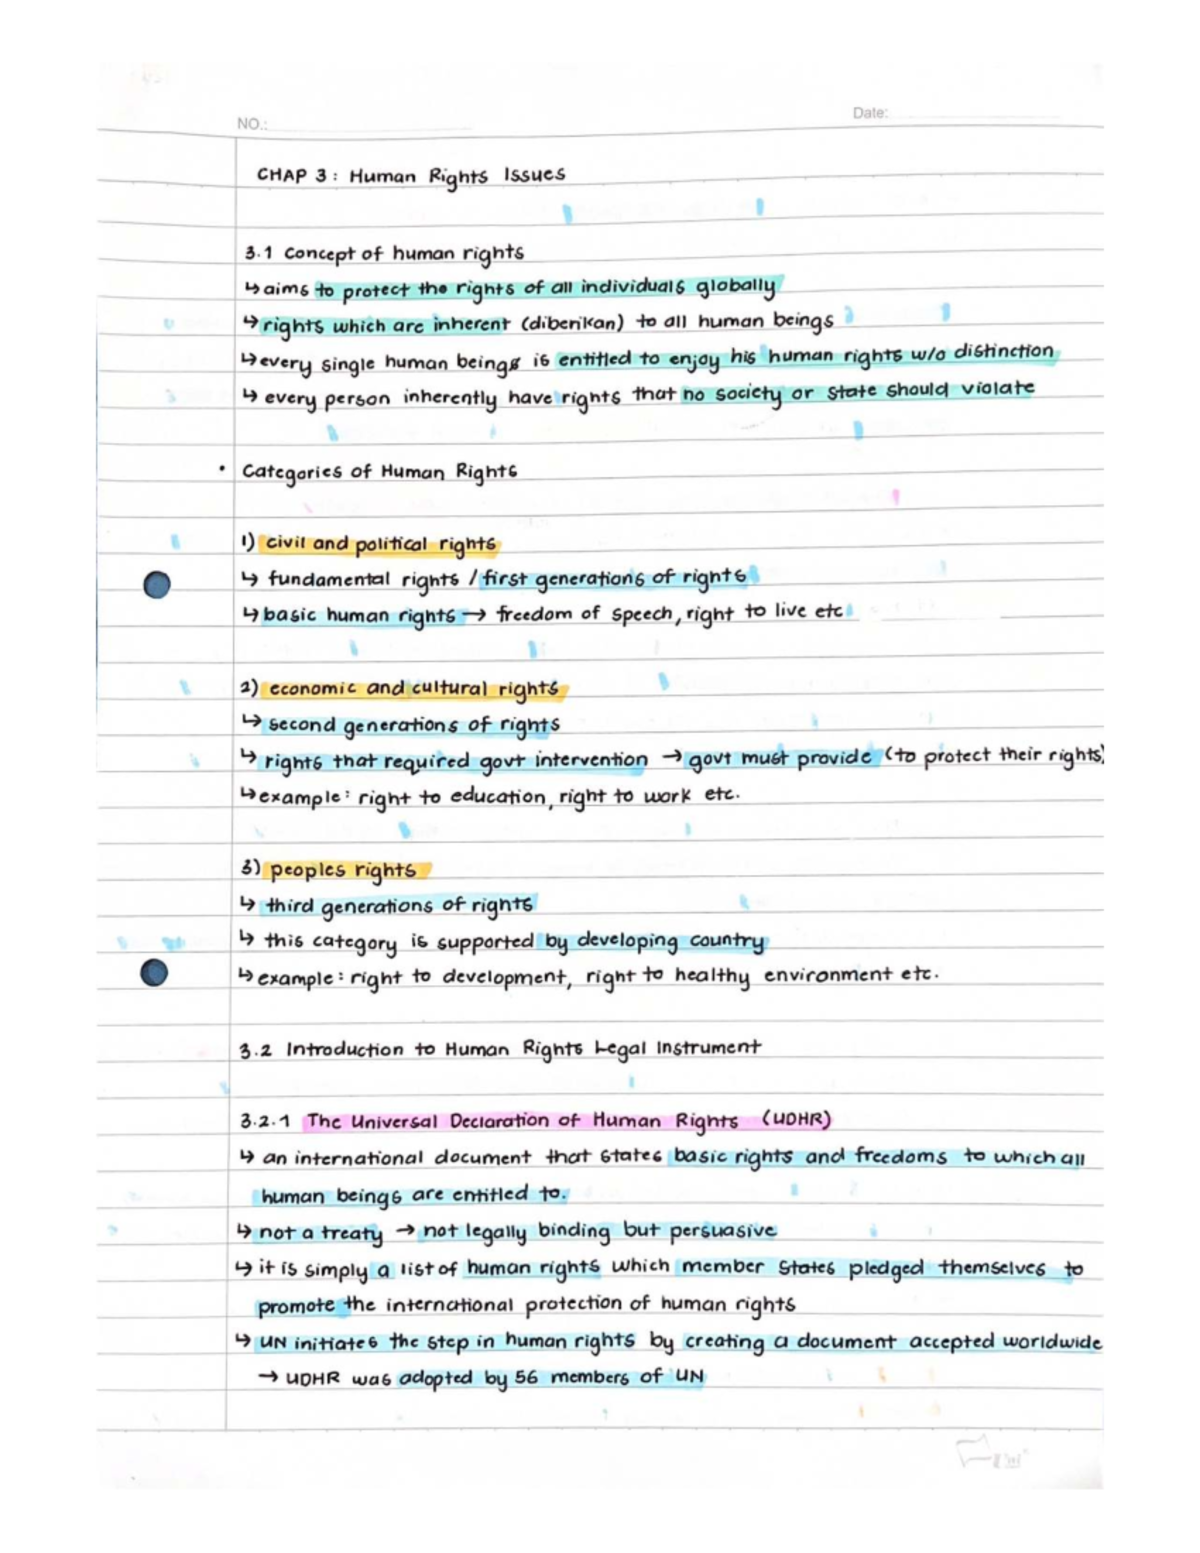 NO.:
Date:
CHAP 3: Human Rights Issues
3.1 Concept of human rights
↳ aims to protect the rights of all individuals globally
↳ rights which are inherent (diberikan) to all human beings
↳ every single human beings is entitled to enjoy his human rights w/o distinction
↳ every person inherently have rights that no society or state should violate
• Categories of Human Rights
1) civil and political rights
↳ fundamental rights / first generations of rights
↳ basic human rights → freedom of speech, right to live etc
2) economic and cultural rights
↳ second generations of rights
↳ rights that required govt intervention → govt must provide (to protect their rights)
↳ example: right to education, right to work etc.
3) peoples rights
↳ third generations of rights
↳ this category is supported by developing country
↳ example: right to development, right to healthy environment etc.
3.2 Introduction to Human Rights Legal Instrument
3.2.1 The Universal Declaration of Human Rights (UDHR)
↳ an international document that states basic rights and freedoms to which all
human beings are entitled to.
↳ not a treaty → not legally binding but persuasive
↳ it is simply a list of human rights which member states pledged themselves to
promote the international protection of human rights
↳ UN initiates the step in human rights by creating a document accepted worldwide
→ UDHR was adopted by 56 members of UN